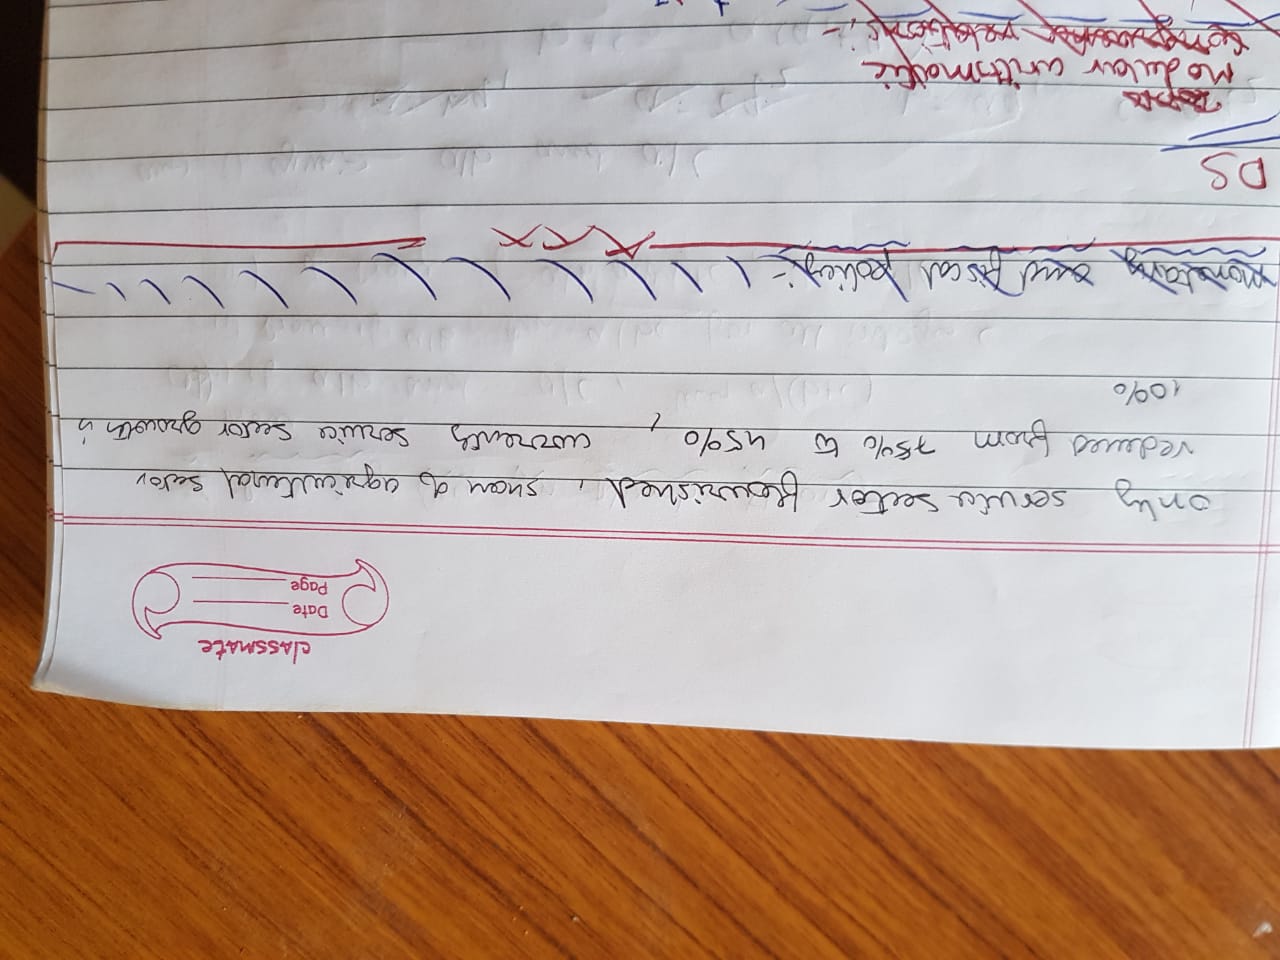 classmate
Date
Page
only service sector flourished, share of agricultural sector
reduced from 75% to 45%, currently service sector growth is
10%
monetary and fiscal policy:-
DS
Modular arithmatic
Congruence relations:-